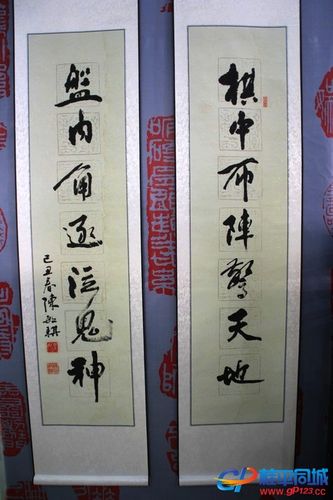 棋中布陣驚天地
盤内角逐泣鬼神
己丑春陳
桂平同城
www.gp123.cc